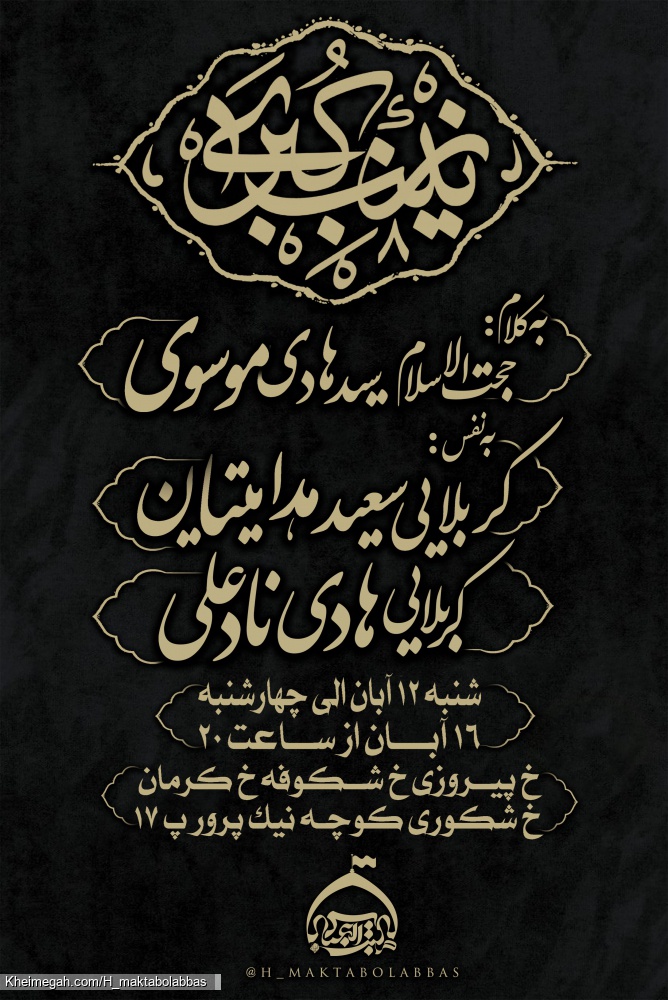 زینب کبری
به کلام:
حجت الاسلام سید هادی موسوی
به نفس:
کربلایی سعید هدایتیان
کربلایی هادی نادعلی
شنبه ۱۲ آبان الی چهارشنبه
۱۶ آبـان از سـاعت ۲۰
خ پیـروزی خ شـکوفه خ کرمان
خ شکوری کوچـه نیك پرور پ ۱۷
مکتب العباس
@H_MAKTABOLABBAS
Kheimegah.com/H_maktabolabbas